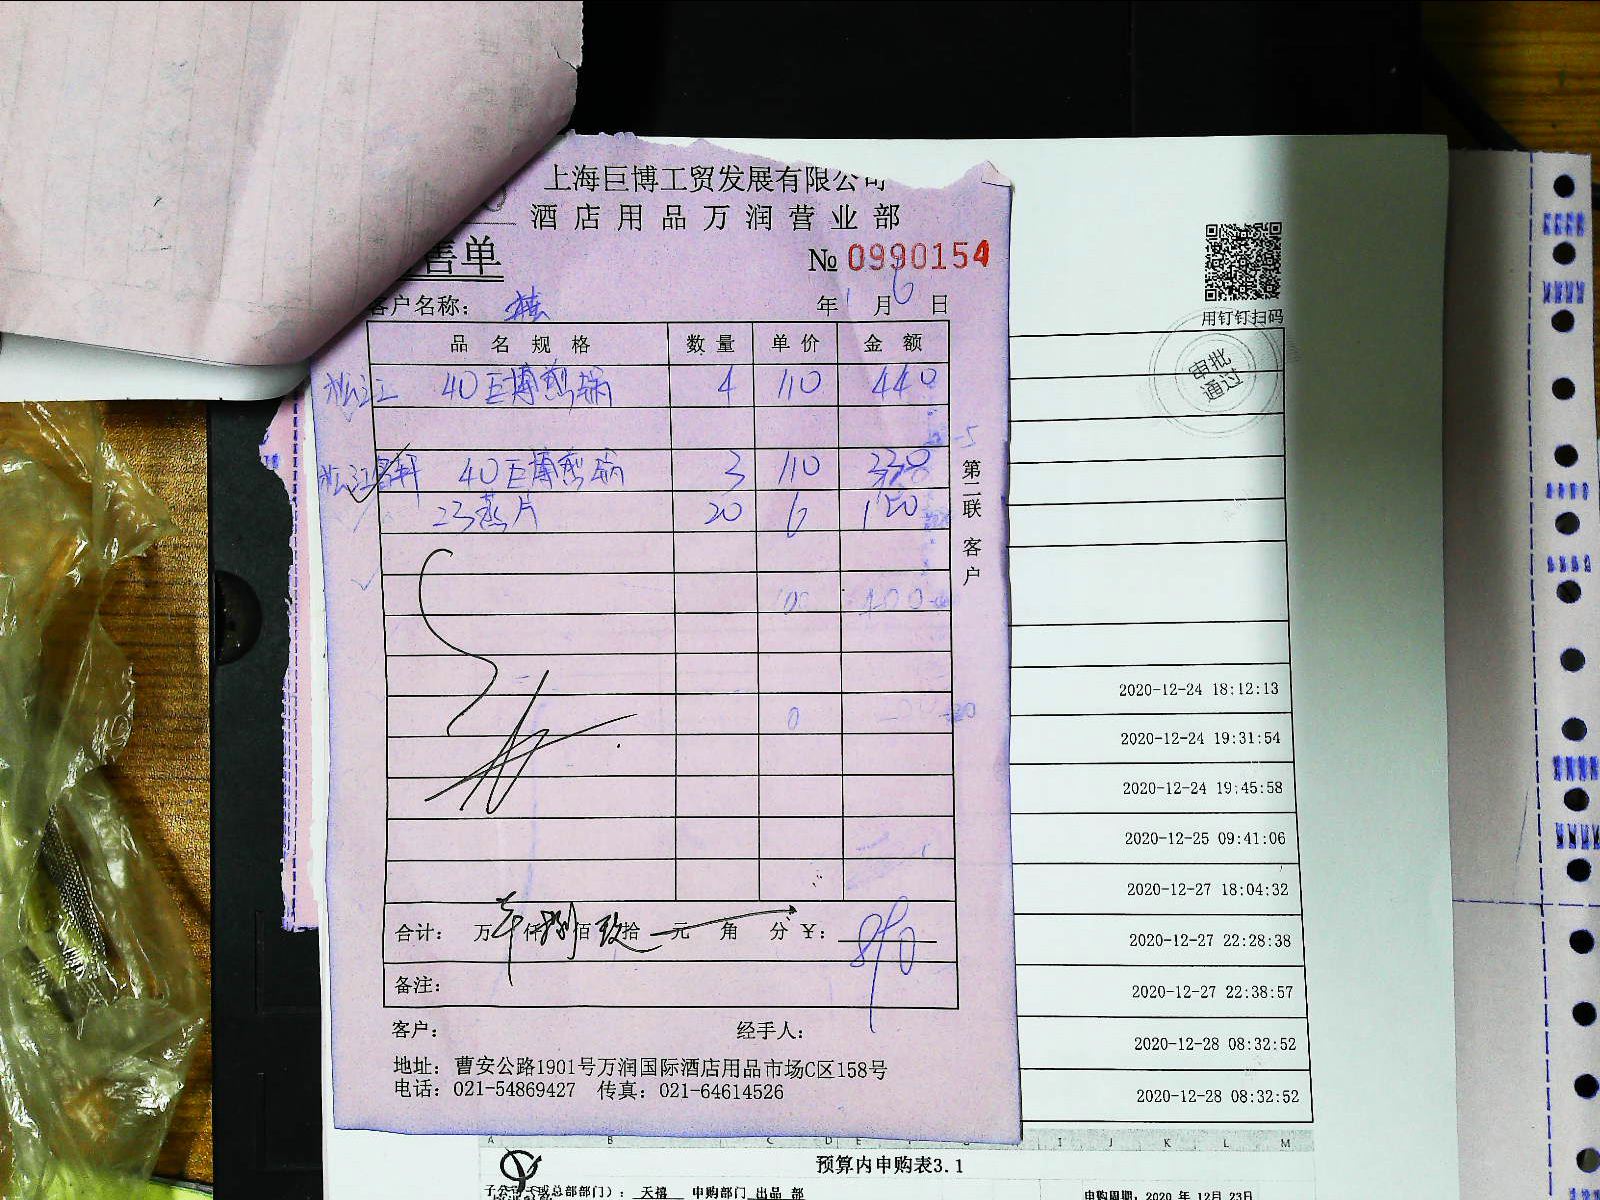 上海巨博工贸发展有限公司
酒店用品万润营业部
售单
№ 0990154
客户名称：
年 1 月 6 日
品名规格 数量 单价 金额
松江 40巨博煎锅 4 110 440
松江 40巨博煎锅 3 110 330
23蒸片 20 6 120
第二联 客户
合计： 万 仟 捌 佰 玖 拾 元 角 分 ¥： 890
备注：
客户： 经手人：
地址：曹安公路1901号万润国际酒店用品市场C区158号
电话：021-54869427 传真：021-64614526
用钉钉扫码
审批
通过
2020-12-24 18:12:13
2020-12-24 19:31:54
2020-12-24 19:45:58
2020-12-25 09:41:06
2020-12-27 18:04:32
2020-12-27 22:28:38
2020-12-27 22:38:57
2020-12-28 08:32:52
2020-12-28 08:32:52
A B C D E I J K L M
预算内申购表3.1
子公司（或总部部门）： 天禧 申购部门 出品 部 申购周期：2020 年 12月 23日